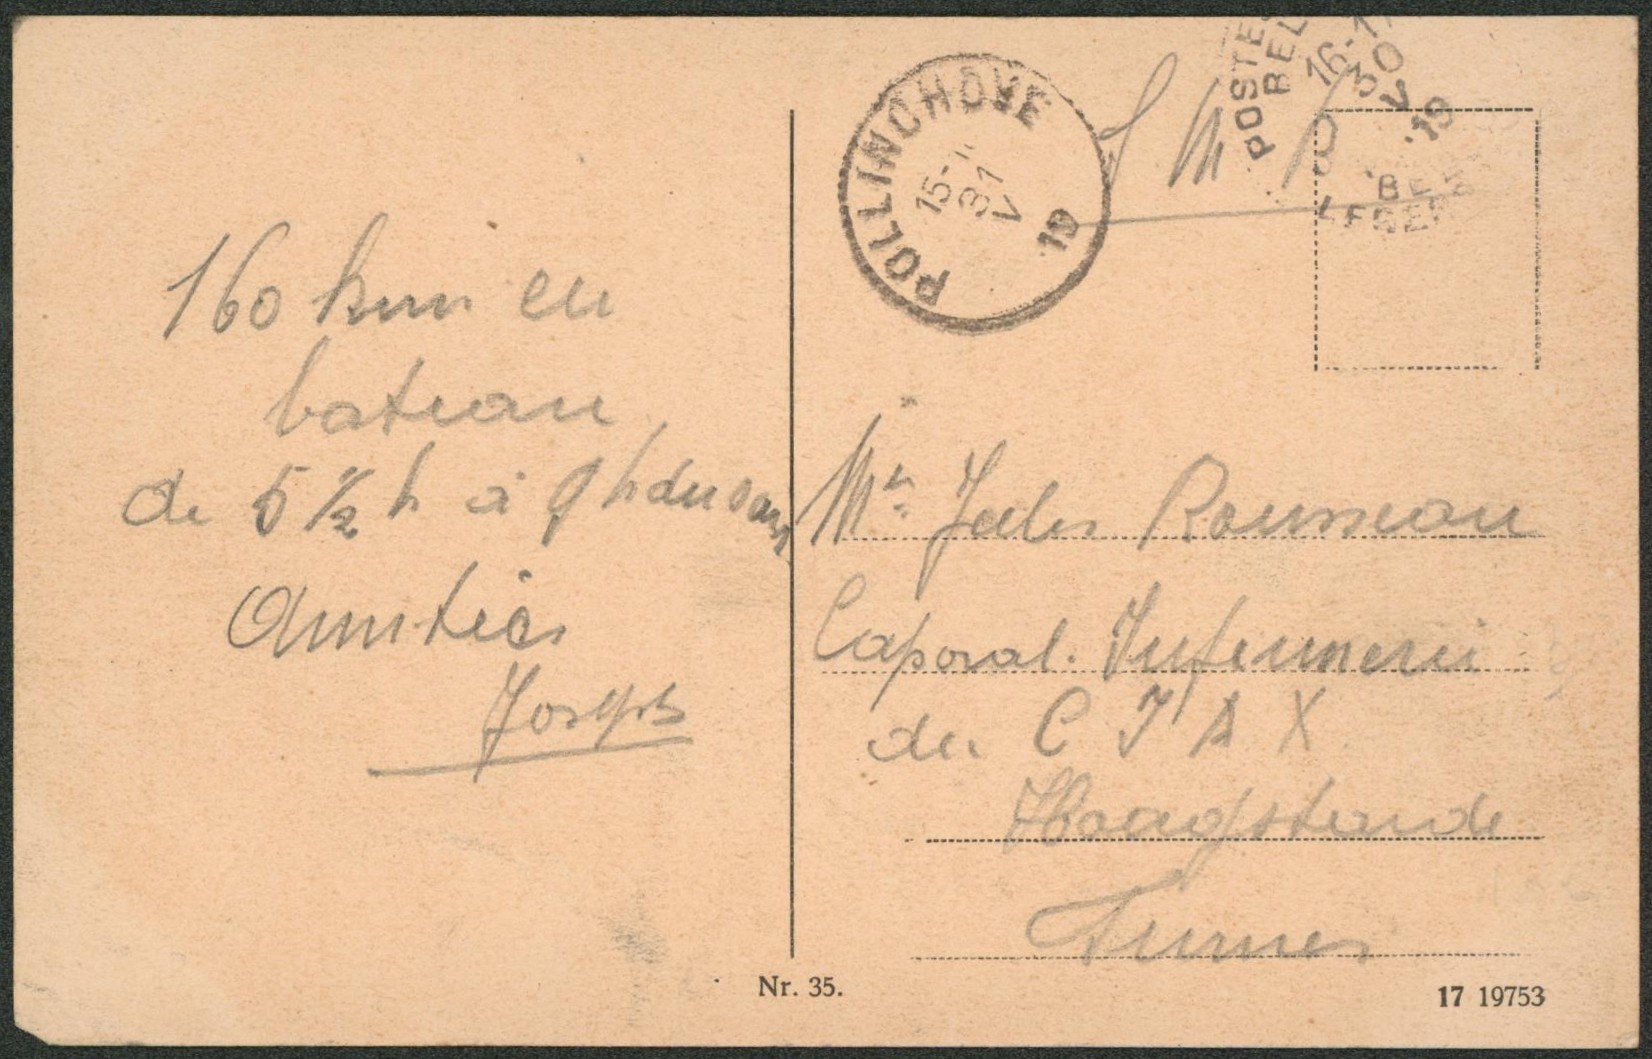 160 km en
bateau
de 5 1/2 h à 9 h du soir
Amitiés
Joseph
POLLINCHOVE
15-
31
V
19
S M
POSTES
BEL
16-17
30
V
19
BEL
LEGER
Mr. Jules Rousseau
Caporal. Infirmerie
du C I A X
Hoogstaede
Furnes
Nr. 35.
17 19753